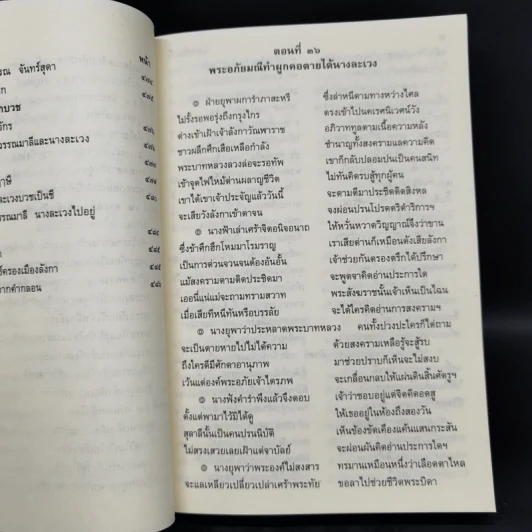 หน้า
รณ จันทร์สุดา ๔๗๔
ก ๔๗๕
าบวช
จักร ๔๗๖
วรรณมาลีและนางละเวง ๔๗๗
๔๗๘
ฤาษี ๔๗๙
ะเวงบวชเป็นชี ๔๘๑
รรณมาลี นางละเวงไปอยู่
๔๘๙
ธิ์ครองเมืองลังกา ๔๘๑
ากคำกลอน ๔๘๓
ตอนที่ ๓๖
พระอภัยมณีทำผูกคอตายได้นางละเวง
๏ ฝ่ายยุพาผการำภาสะหรี ซึ่งล่าหนีตามทางหว่างไศล
ไม่รั้งรอพอรุ่งถึงกรุงไกร ตรงเข้าไปนคเรศนิเวศน์วัง
ต่างเข้าเฝ้าเจ้าลังกาวัณพาราช อภิวาททูลตามเนื้อความหลัง
ชาวผลึกศึกเสือเหลือกำลัง ชำนาญทั้งสงครามและความคิด
พระบาทหลวงลวงล่อจะรอทัพ เขาก็กลับปลอมปนเป็นคนสนิท
เข้าจุดไฟไหม้ด่านผลาญชีวิต ไม่ทันคิดรบสู้ทุกผู้คน
เขาได้เขาเจ้าประจัญแล้ววันนี้ จะตามตีมาประชิดติดสิงหล
จะเสียวังลังกาเข้าตาจน จงผ่อนปรนโปรดตรีดำริการฯ
๏ นางฟังเล่าเศร้าจิตอนิจอนาถ ให้หวั่นหวาดวิญญาณ์จึงว่าขาน
ซึ่งข้าศึกฮึกโหมมาโรมราญ เราเสียด่านก็เหมือนดังเสียลังกา
เป็นการด่วนจวนจนต้องอ้นอั้น เจ้าช่วยกันตรองตรึกได้ปรึกษา
แม้สงครามตามติดประชิดมา จะพูดจาคิดอ่านประการใด
เออนี่แน่แม่จะถามทรามสวาท พระสังฆราชนั้นเจ้าเห็นเป็นไฉน
เมื่อเสียทีหนีทันหรือบรรลัย จะได้ใครคิดอ่านการสงครามฯ
๏ นางยุพาว่าประหลาดพระบาทหลวง คนทั้งปวงปะใครก็ไต่ถาม
จะเป็นตายหายไปไม่ได้ความ ด้วยสงครามเหลือรู้จะสู้รบ
ถึงใครดีมีศักดาอานุภาพ มาช่วยปราบก็เห็นจะไม่สงบ
เว้นแต่องค์พระอภัยเจ้าไตรภพ จะเกลื่อนกลบให้แผ่นดินสิ้นศัตรูฯ
๏ นางฟังคำรำพึงแล้วจึงตอบ เจ้าว่าชอบอยู่แต่จิตคิดอดสู
ตั้งแต่พามาไว้มิได้ดู ให้เธออยู่ในห้องถึงสองวัน
สุลาลีนั้นเป็นคนปรนนิบัติ เห็นข้องขัดเคืองแค้นแสนกระสัน
ไม่สรงเสวยเลยเฝ้าแต่จาบัลย์ จะผ่อนผันคิดอ่านประการใดฯ
๏ นางยุพาว่าพระองค์ไม่สงสาร ทรมานเหมือนหนึ่งว่าเลือดตาไหล
จะแลเหลียวเปลี่ยวเปล่าเศร้าพระทัย ขอลาไปช่วยชีวิตพระบิดา